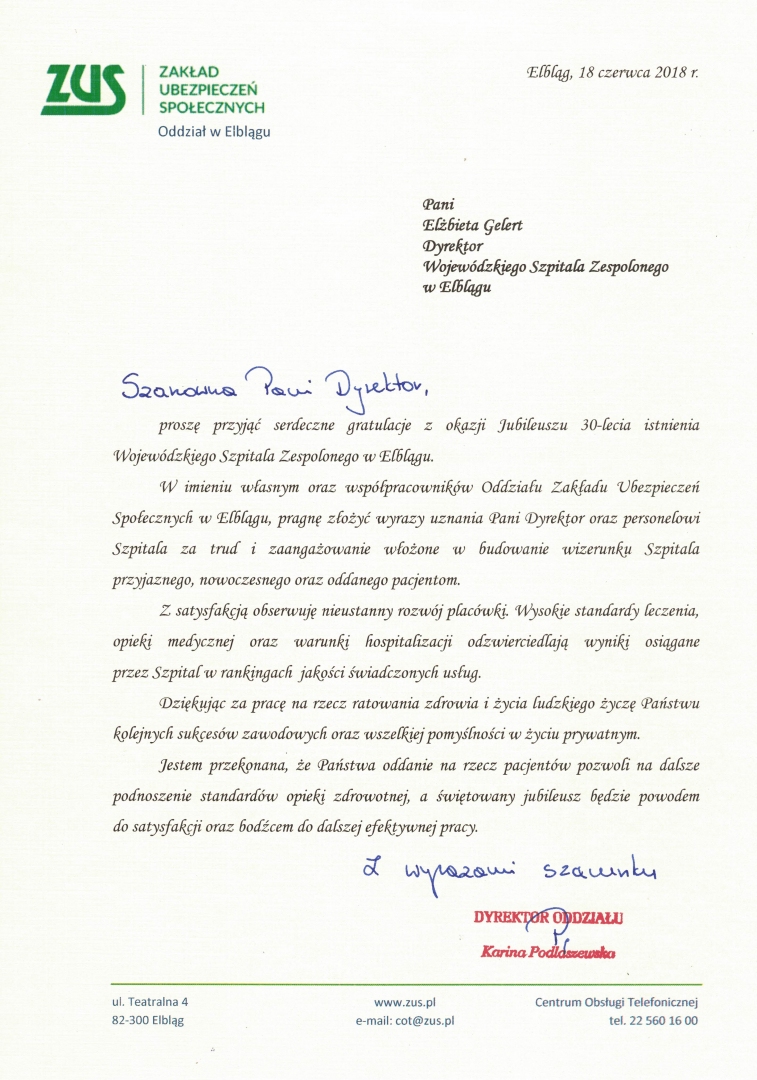 ZUS
ZAKŁAD
UBEZPIECZEŃ
SPOŁECZNYCH
Oddział w Elblągu
Elbląg, 18 czerwca 2018 r.
Pani
Elżbieta Gelert
Dyrektor
Wojewódzkiego Szpitala Zespolonego
w Elblągu
Szanowna Pani Dyrektor,
proszę przyjąć serdeczne gratulacje z okazji Jubileuszu 30-lecia istnienia
Wojewódzkiego Szpitala Zespolonego w Elblągu.
W imieniu własnym oraz współpracowników Oddziału Zakładu Ubezpieczeń
Społecznych w Elblągu, pragnę złożyć wyrazy uznania Pani Dyrektor oraz personelowi
Szpitala za trud i zaangażowanie włożone w budowanie wizerunku Szpitala
przyjaznego, nowoczesnego oraz oddanego pacjentom.
Z satysfakcją obserwuję nieustanny rozwój placówki. Wysokie standardy leczenia,
opieki medycznej oraz warunki hospitalizacji odzwierciedlają wyniki osiągane
przez Szpital w rankingach jakości świadczonych usług.
Dziękując za pracę na rzecz ratowania zdrowia i życia ludzkiego życzę Państwu
kolejnych sukcesów zawodowych oraz wszelkiej pomyślności w życiu prywatnym.
Jestem przekonana, że Państwa oddanie na rzecz pacjentów pozwoli na dalsze
podnoszenie standardów opieki zdrowotnej, a świętowany jubileusz będzie powodem
do satysfakcji oraz bodźcem do dalszej efektywnej pracy.
Z wyrazami szacunku
DYREKTOR ODDZIAŁU
Karina Podlaszewska
ul. Teatralna 4
82-300 Elbląg
www.zus.pl
e-mail: cot@zus.pl
Centrum Obsługi Telefonicznej
tel. 22 560 16 00